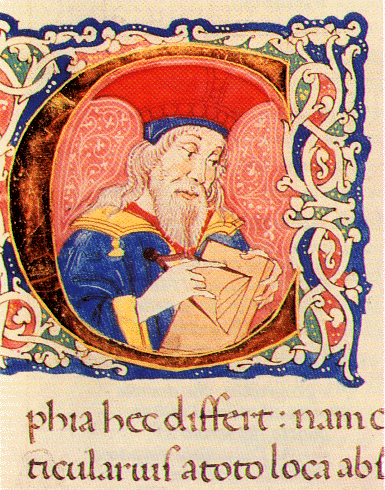 C
phia hec differt : nam c
ticulariuſ atoto loca abſ